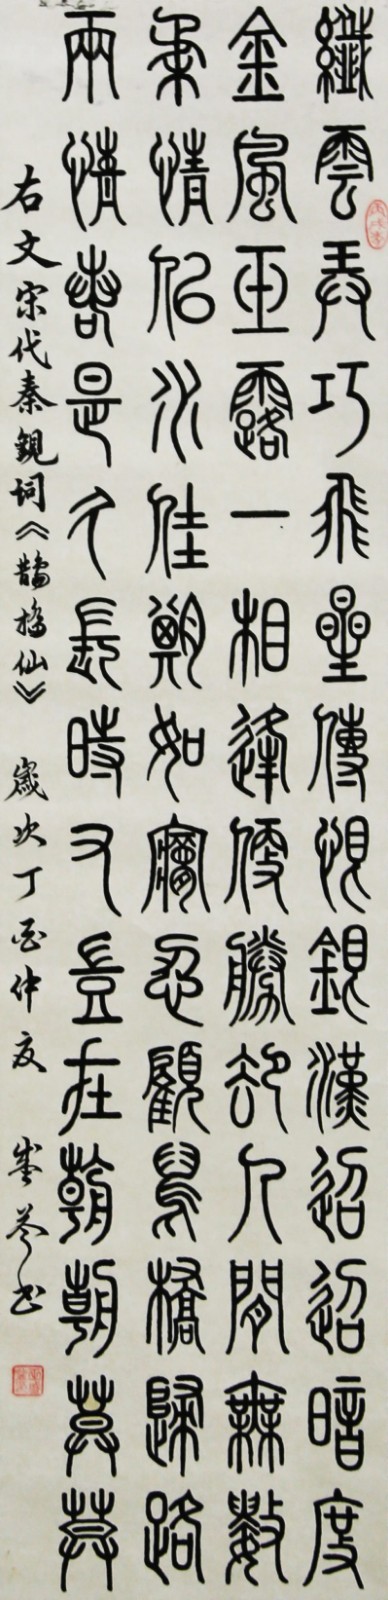 纖雲弄巧飛曐傳恨銀漢迢迢暗度
金風玉露一相逢便勝卻人間無數
柔情佀水佳期如夢忍顧鵲橋歸路
兩情若是久長時又豈在朝朝莫莫
右文宋代秦觀詞《鵲橋仙》 歲次丁酉仲夏 书